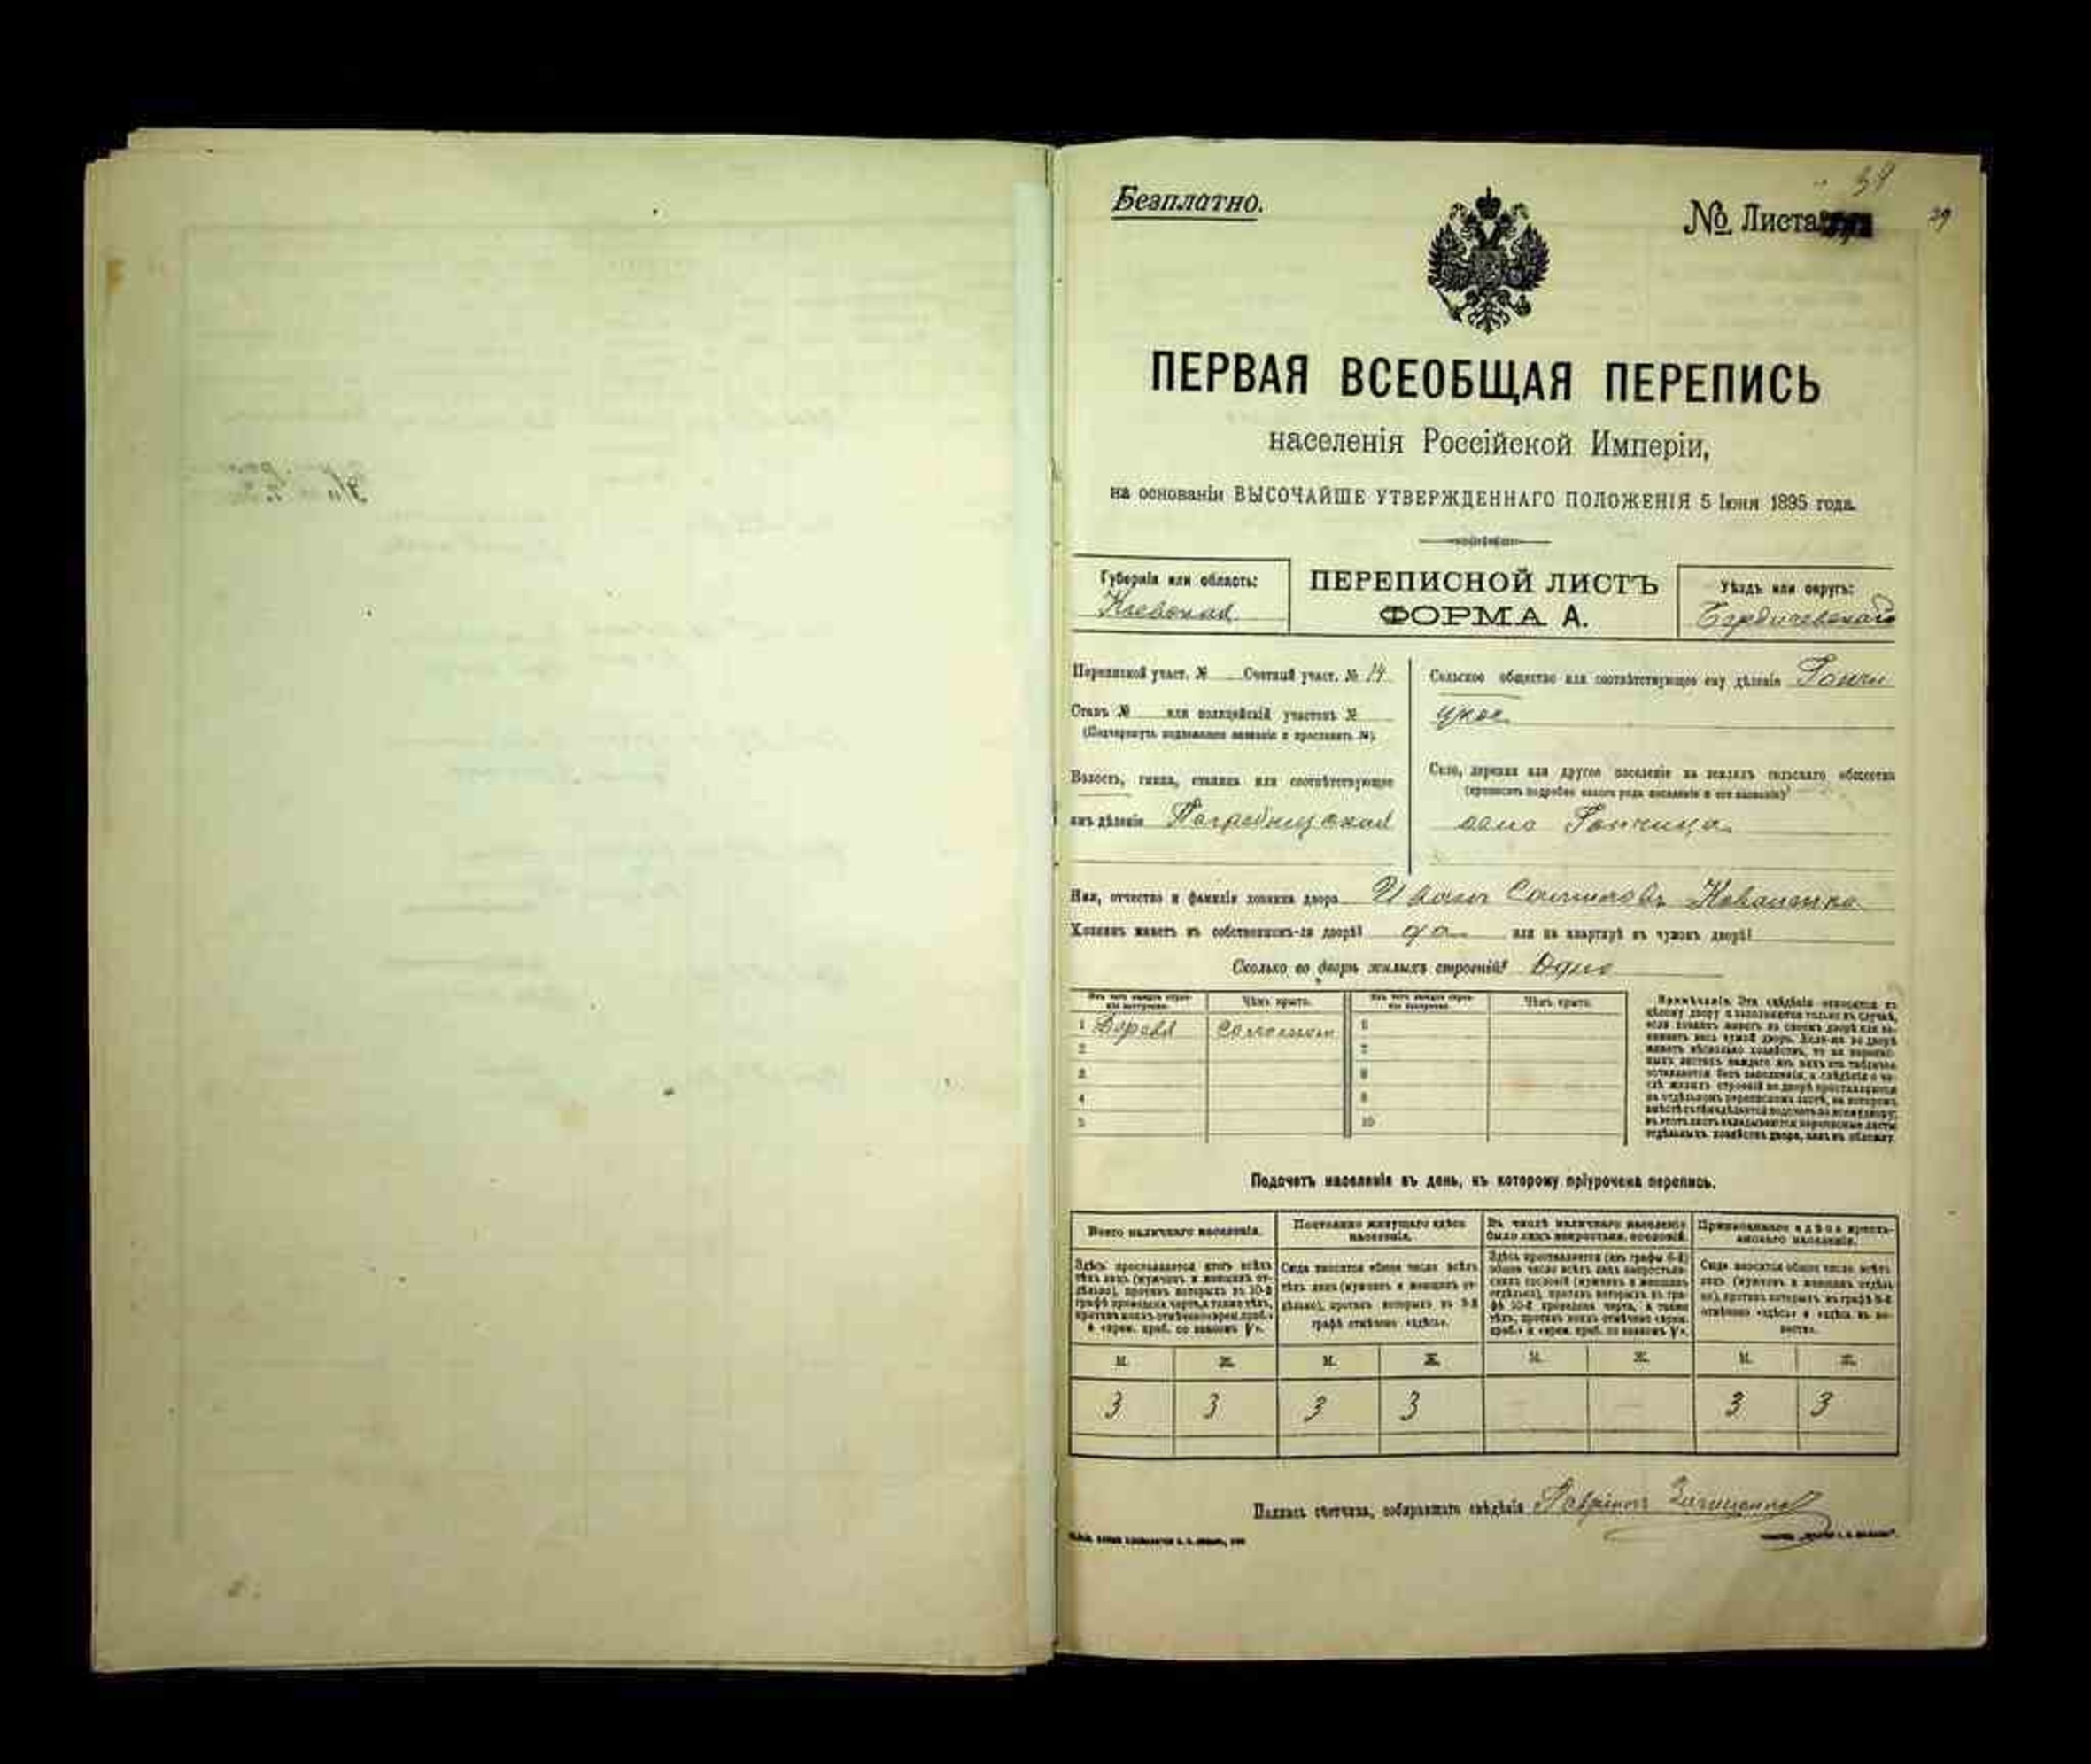 39
Безплатно.
№ Листа
29
ПЕРВАЯ ВСЕОБЩАЯ ПЕРЕПИСЬ
населенія Россійской Имперіи,
на основаніи ВЫСОЧАЙШЕ УТВЕРЖДЕННАГО ПОЛОЖЕНІЯ 5 Іюня 1895 года.
Губернія или область:
Кіевская
ПЕРЕПИСНОЙ ЛИСТЪ
ФОРМА А.
Уѣздъ или округъ:
Бердичевскаго
Переписной участ. № Счетный участ. № 14
Станъ № или полицейскій участокъ №
(Подчеркнуть надлежащее названіе и проставить №).
Волость, гмина, станица или соотвѣтствующее
имъ дѣленіе Погребищская
Сельское общество или соотвѣтствующее ему дѣленіе Гончи
цкое
Село, деревня или другое поселеніе на земляхъ сельскаго общества
(прописать подробно какого рода поселеніе и его названіе)
село Гончица
Имя, отчество и фамилія хозяина двора Иванъ Коваленко
Хозяинъ живетъ въ собственномъ-ли дворѣ? да или на квартирѣ въ чужомъ дворѣ?
Сколько во дворѣ жилыхъ строеній? Одно
Изъ чего каждое строеніе выстроено. Чѣмъ крыто. Изъ чего каждое строеніе выстроено. Чѣмъ крыто.
1 Дерева соломой 6
2 7
3 8
4 9
5 10
Примѣчаніе. Эти свѣдѣнія относятся къ
цѣлому двору и заполняются только въ случаѣ,
если хозяинъ живетъ въ своемъ дворѣ или за-
нимаетъ весь чужой дворъ. Если-же во дворѣ
имѣетъ нѣсколько хозяйствъ, то на перепис-
ныхъ листахъ каждаго изъ нихъ эта табличка
оставляется безъ заполненія, а свѣдѣнія о чи-
слѣ жилыхъ строеній во дворѣ проставляются
на отдѣльномъ переписномъ листѣ, на которомъ
вмѣстѣ съ тѣмъ дѣлается подсчетъ по всему двору;
въ этотъ листъ вкладываются переписные листы
отдѣльныхъ хозяйствъ двора, какъ въ обложку.
Подсчетъ населенія въ день, къ которому пріурочена перепись.
Всего наличнаго населенія.
Здѣсь проставляется итогъ всѣхъ
тѣхъ лицъ (мужчинъ и женщинъ от-
дѣльно), противъ которыхъ въ 10-й
графѣ проведена черта, а также тѣхъ,
противъ коихъ отмѣчено «врем. преб.»
и «врем. преб. со знакомъ V».
Постоянно живущаго здѣсь
населенія.
Сюда вносится общее число всѣхъ
тѣхъ лицъ (мужчинъ и женщинъ от-
дѣльно), противъ которыхъ въ 9-й
графѣ отмѣчено «здѣсь».
Въ числѣ наличнаго населенія
было лицъ некрестьян. сословій.
Здѣсь проставляется (изъ графы 6-й)
общее число всѣхъ лицъ некрестьян-
скихъ сословій (мужчинъ и женщинъ
отдѣльно), противъ которыхъ въ гра-
фѣ 10-й проведена черта, а также
тѣхъ, противъ коихъ отмѣчено «врем.
преб.» и «врем. преб. со знакомъ V».
Приписаннаго здѣсь кресть-
янскаго населенія.
Сюда вносится общее число всѣхъ
лицъ (мужчинъ и женщинъ отдѣль-
но), противъ которыхъ въ графѣ 8-й
отмѣчено «здѣсь» и «здѣсь въ во-
лости».
М. Ж. М. Ж. М. Ж. М. Ж.
3 3 3 3 — — 3 3
Подпись счетчика, собиравшаго свѣдѣнія